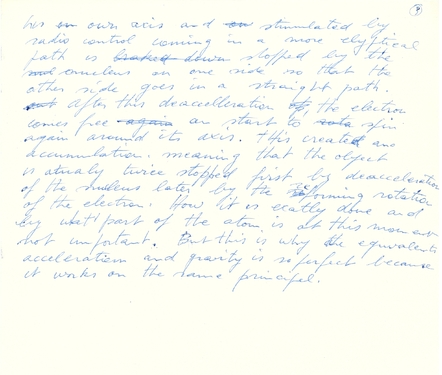 9
her own axis and stimulated by
radio control coming in a more elyptical
path is stopped by the
nucleus on one side so that the
other side goes in a straight path.
After this deacceleration the electron
comes free an start to spin
again around its axis. This created an
accumulation. meaning that the object
is atualy twice stopped first by deacceleration
of the nucleus later by the forming rotation
of the electron. How it is exatly done and
by what part of the atom is at this moment
not important. But this is why the equivalents
acceleration and gravity is so perfect because
it works on the same principel.